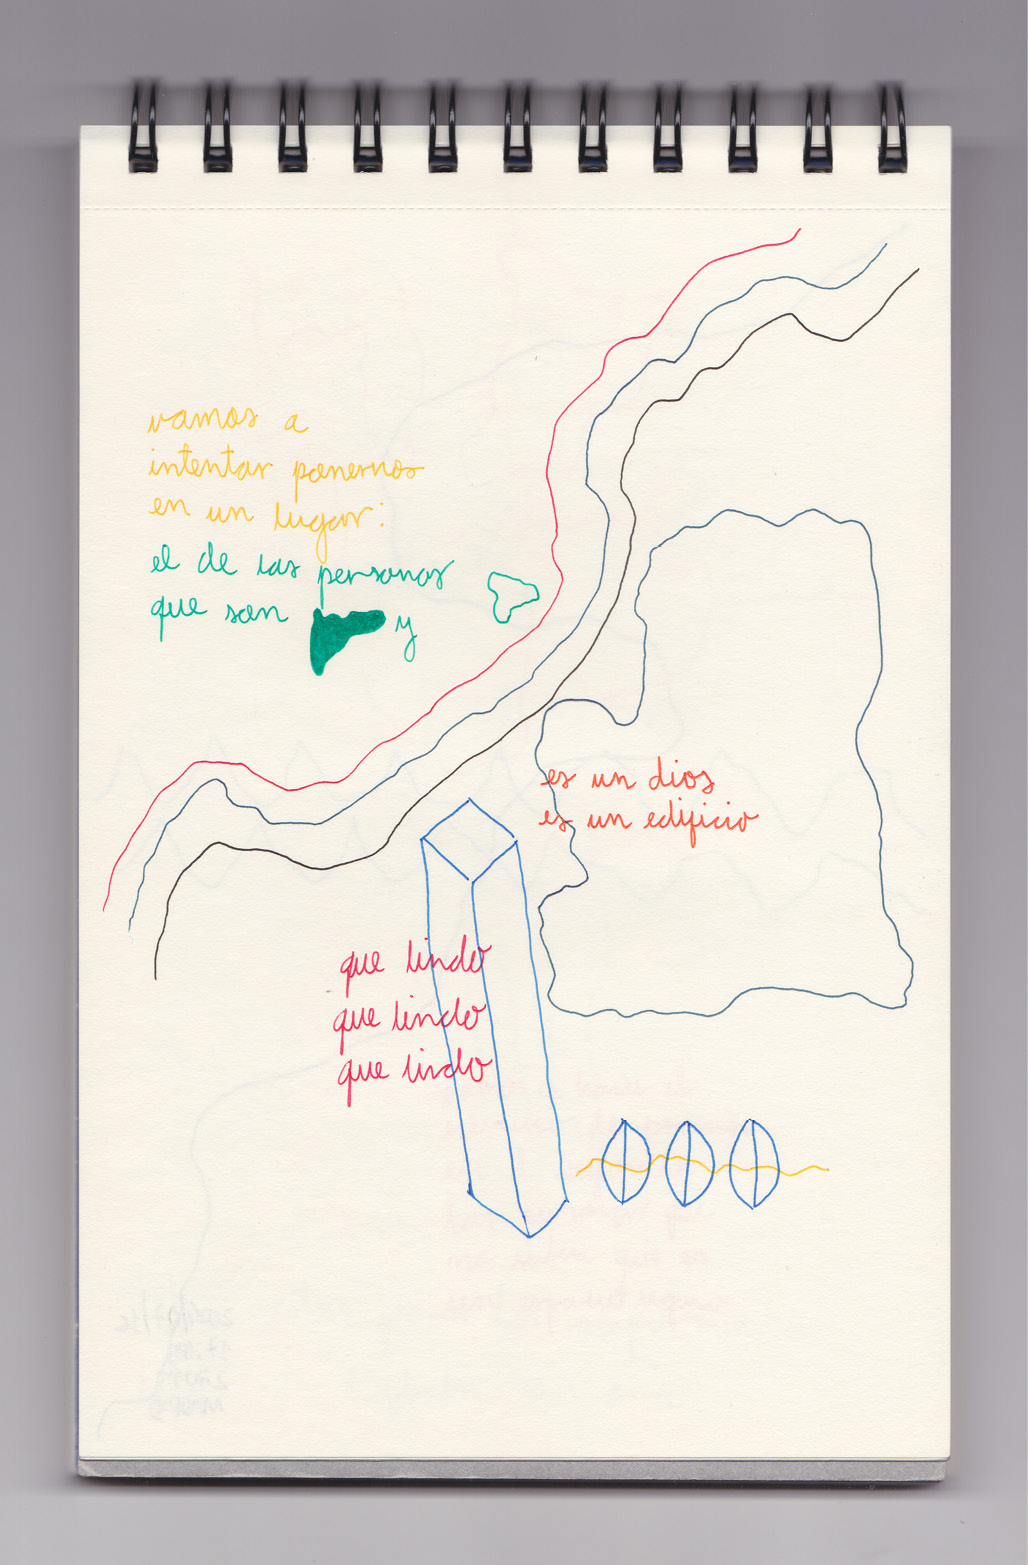 vamos a
intentar ponernos
en un lugar:
el de las personas
que son y
es un dios
es un edificio
que lindo
que lindo
que lindo